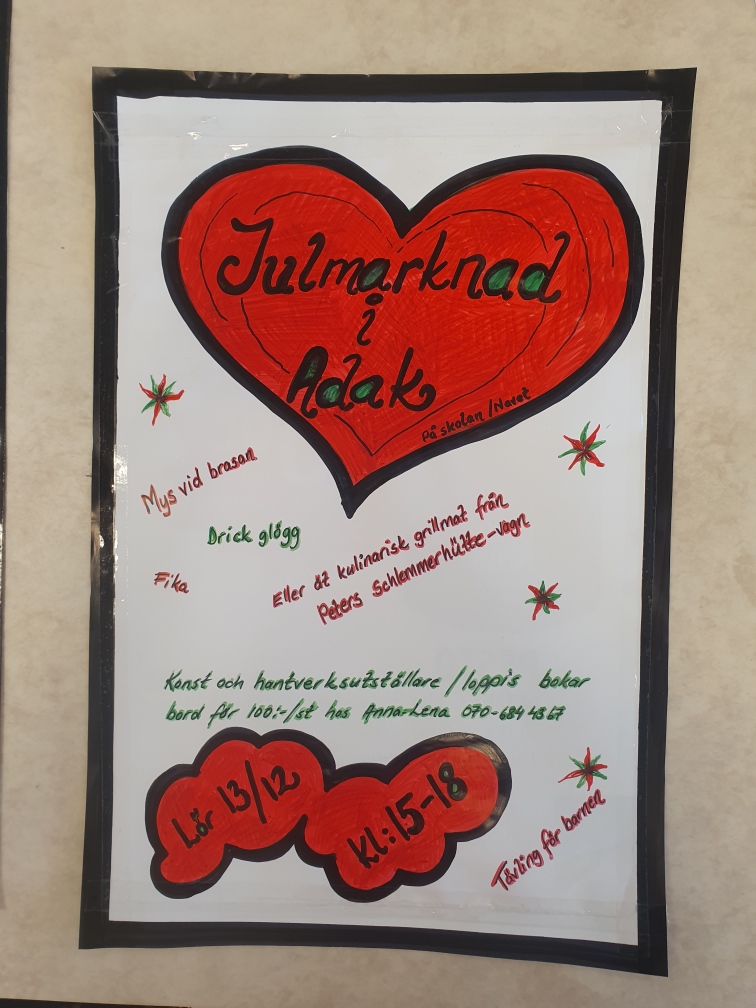 Julmarknad
i
Adak
På skolan/Navet
Mys vid brasan
Drick glögg
Fika
Eller ät kulinarisk grillmat från
Peters Schlemmerhütte-vagn
Konst och hantverksutställare/loppis bokar
bord för 100:-/st hos Anna-Lena 070-684 4367
Lör 13/12
Kl:15-18
Tävling för barnen